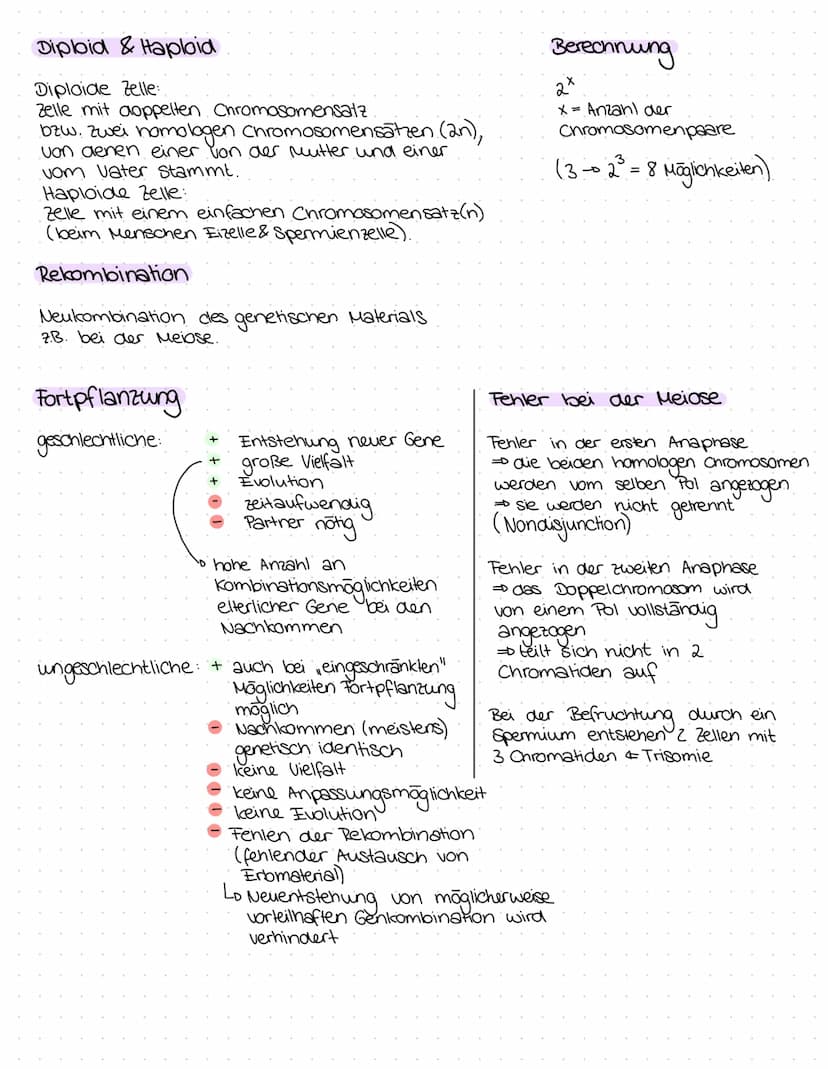 Diploid & Haploid
Diploide Zelle:
Zelle mit doppelten Chromosomensatz
bzw. zwei homologen Chromosomensätzen (2n),
von denen einer von der Mutter und einer
vom Vater stammt.
Haploide Zelle:
Zelle mit einem einfachen Chromosomensatz(n)
(beim Menschen Eizelle & Spermienzelle).
Berechnung
2ˣ
x = Anzahl der
Chromosomenpaare
(3 → 2³ = 8 Möglichkeiten)
Rekombination
Neukombination des genetischen Materials
z.B. bei der Meiose.
Fortpflanzung
geschlechtliche:
+ Entstehung neuer Gene
+ große Vielfalt
+ Evolution
- zeitaufwendig
- Partner nötig
hohe Anzahl an
Kombinationsmöglichkeiten
elterlicher Gene bei den
Nachkommen
ungeschlechtliche: + auch bei „eingeschränkten"
Möglichkeiten Fortpflanzung
möglich
- Nachkommen (meistens)
genetisch identisch
- keine Vielfalt
- keine Anpassungsmöglichkeit
- keine Evolution
- Fehlen der Rekombination
(fehlender Austausch von
Erbmaterial)
↳ Neuentstehung von möglicherweise
vorteilhaften Genkombination wird
verhindert
Fehler bei der Meiose
Fehler in der ersten Anaphase
⇒ die beiden homologen Chromosomen
werden vom selben Pol angezogen
⇒ sie werden nicht getrennt
(Nondisjunction)
Fehler in der zweiten Anaphase
⇒ das Doppelchromosom wird
von einem Pol vollständig
angezogen
⇒ teilt sich nicht in 2
Chromatiden auf
Bei der Befruchtung durch ein
Spermium entstehen 2 Zellen mit
3 Chromatiden ⇐ Trisomie